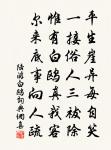 平生崖异每自笑
一接俗人三祓除
惟有白鸥真我客
尔来底事向人疏
陆游白鸥词典網書